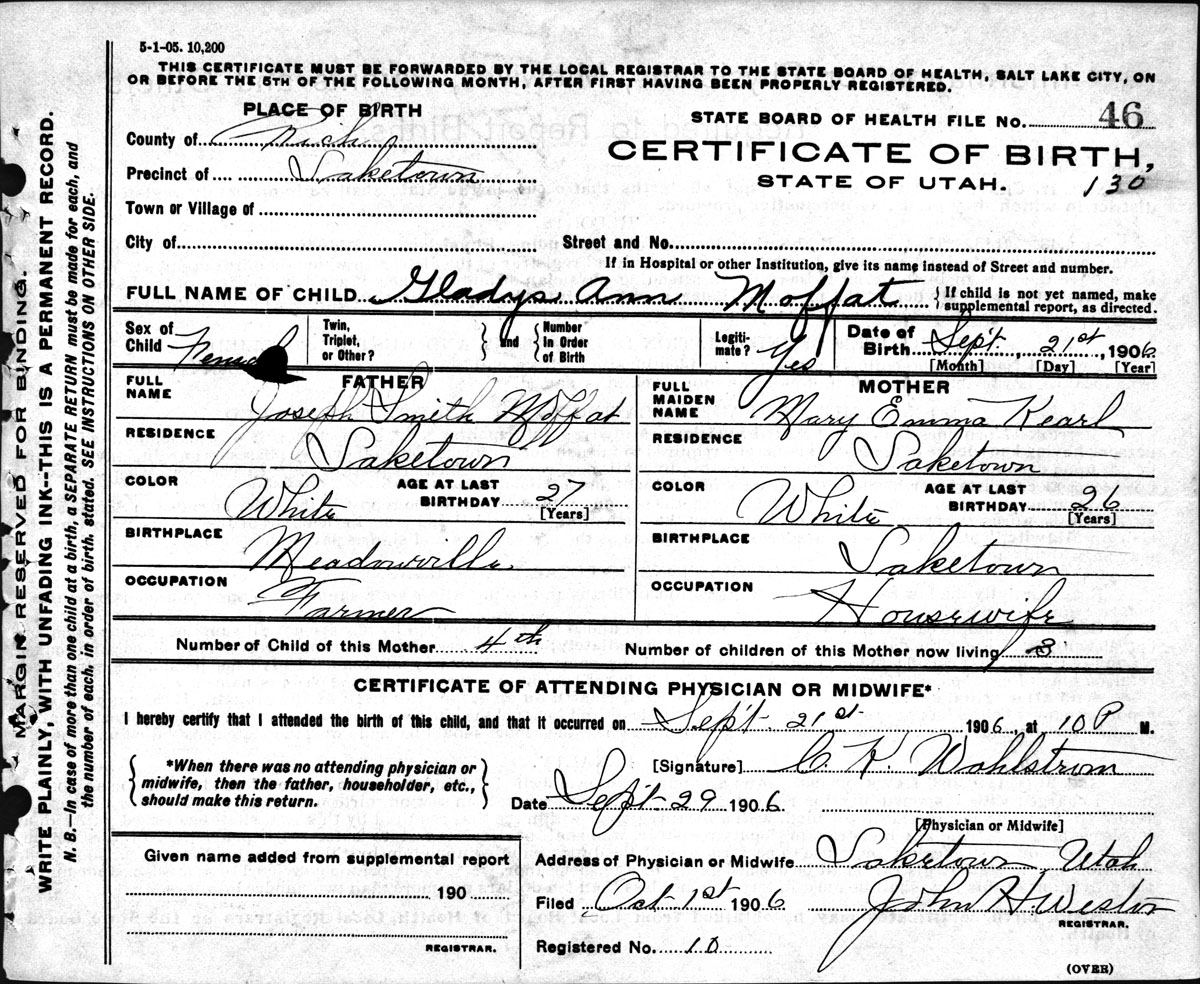 5-1-05. 10,200
THIS CERTIFICATE MUST BE FORWARDED BY THE LOCAL REGISTRAR TO THE STATE BOARD OF HEALTH, SALT LAKE CITY, ON
OR BEFORE THE 5TH OF THE FOLLOWING MONTH, AFTER FIRST HAVING BEEN PROPERLY REGISTERED.
PLACE OF BIRTH
STATE BOARD OF HEALTH FILE NO. 46
County of Rich
CERTIFICATE OF BIRTH,
Precinct of Laketown
STATE OF UTAH. 130
Town or Village of
City of Street and No.
If in Hospital or other Institution, give its name instead of Street and number.
FULL NAME OF CHILD Gladys Ann Moffat { If child is not yet named, make
supplemental report, as directed.
Sex of Child Female Twin, Triplet, or Other? } and { Number in Order of Birth Legiti-mate? Yes Date of Birth Sept. 21st, 1906
[Month] [Day] [Year]
FATHER MOTHER
FULL NAME Joseph Smith Moffat FULL MAIDEN NAME Mary Emma Kearl
RESIDENCE Laketown RESIDENCE Laketown
COLOR White AGE AT LAST BIRTHDAY 27 [Years] COLOR White AGE AT LAST BIRTHDAY 26 [Years]
BIRTHPLACE Meadowville BIRTHPLACE Laketown
OCCUPATION Farmer OCCUPATION Housewife
Number of Child of this Mother 4th Number of children of this Mother now living 3
CERTIFICATE OF ATTENDING PHYSICIAN OR MIDWIFE*
I hereby certify that I attended the birth of this child, and that it occurred on Sept. 21st 1906, at 10 P M.
{ *When there was no attending physician or
midwife, then the father, householder, etc.,
should make this return. }
[Signature] C. K. Wohlstrom
Date Sept 29 1906
[Physician or Midwife]
Given name added from supplemental report
190
REGISTRAR.
Address of Physician or Midwife Laketown Utah
Filed Oct 1st 1906 John H Weston
REGISTRAR.
Registered No. 10
(OVER)
MARGIN RESERVED FOR BINDING.
WRITE PLAINLY, WITH UNFADING INK--THIS IS A PERMANENT RECORD.
N. B.—In case of more than one child at a birth, a SEPARATE RETURN must be made for each, and
the number of each, in order of birth, stated. SEE INSTRUCTIONS ON OTHER SIDE.